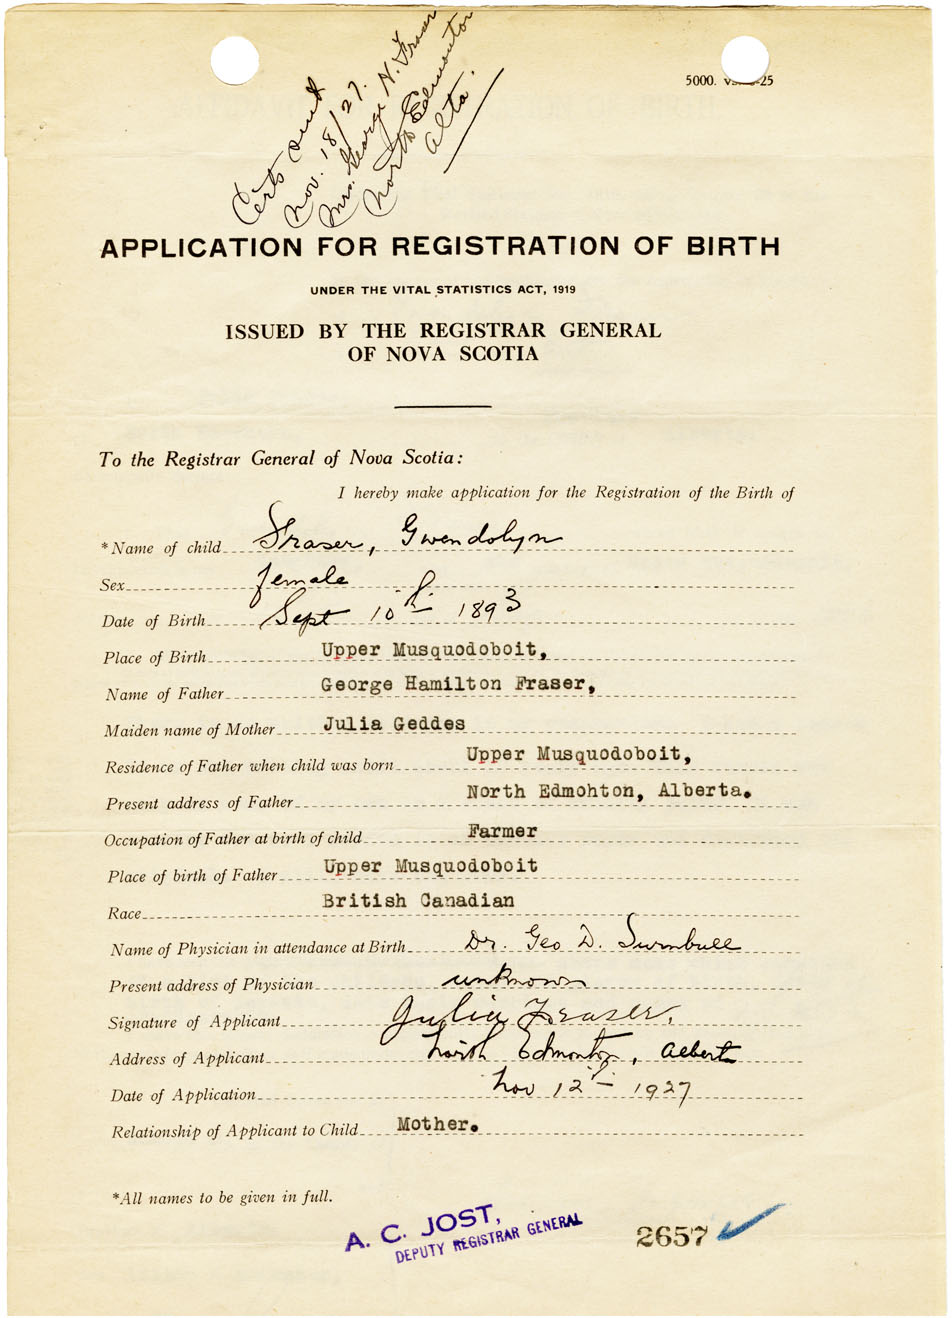 Certs sent
Nov. 18/27.
Mrs. George H. Fraser
North Edmonton
Alta.
5000. 25
APPLICATION FOR REGISTRATION OF BIRTH
UNDER THE VITAL STATISTICS ACT, 1919
ISSUED BY THE REGISTRAR GENERAL
OF NOVA SCOTIA
To the Registrar General of Nova Scotia:
I hereby make application for the Registration of the Birth of
*Name of child Fraser, Gwendolyn
Sex female
Date of Birth Sept 10th 1893
Place of Birth Upper Musquodoboit,
Name of Father George Hamilton Fraser,
Maiden name of Mother Julia Geddes
Residence of Father when child was born Upper Musquodoboit,
Present address of Father North Edmohton, Alberta.
Occupation of Father at birth of child Farmer
Place of birth of Father Upper Musquodoboit
Race British Canadian
Name of Physician in attendance at Birth Dr. Geo D. Turnbull
Present address of Physician unknown
Signature of Applicant Julia Fraser.
Address of Applicant North Edmonton, Albert
Date of Application Nov 12th 1927
Relationship of Applicant to Child Mother.
*All names to be given in full.
A. C. JOST,
DEPUTY REGISTRAR GENERAL
2657